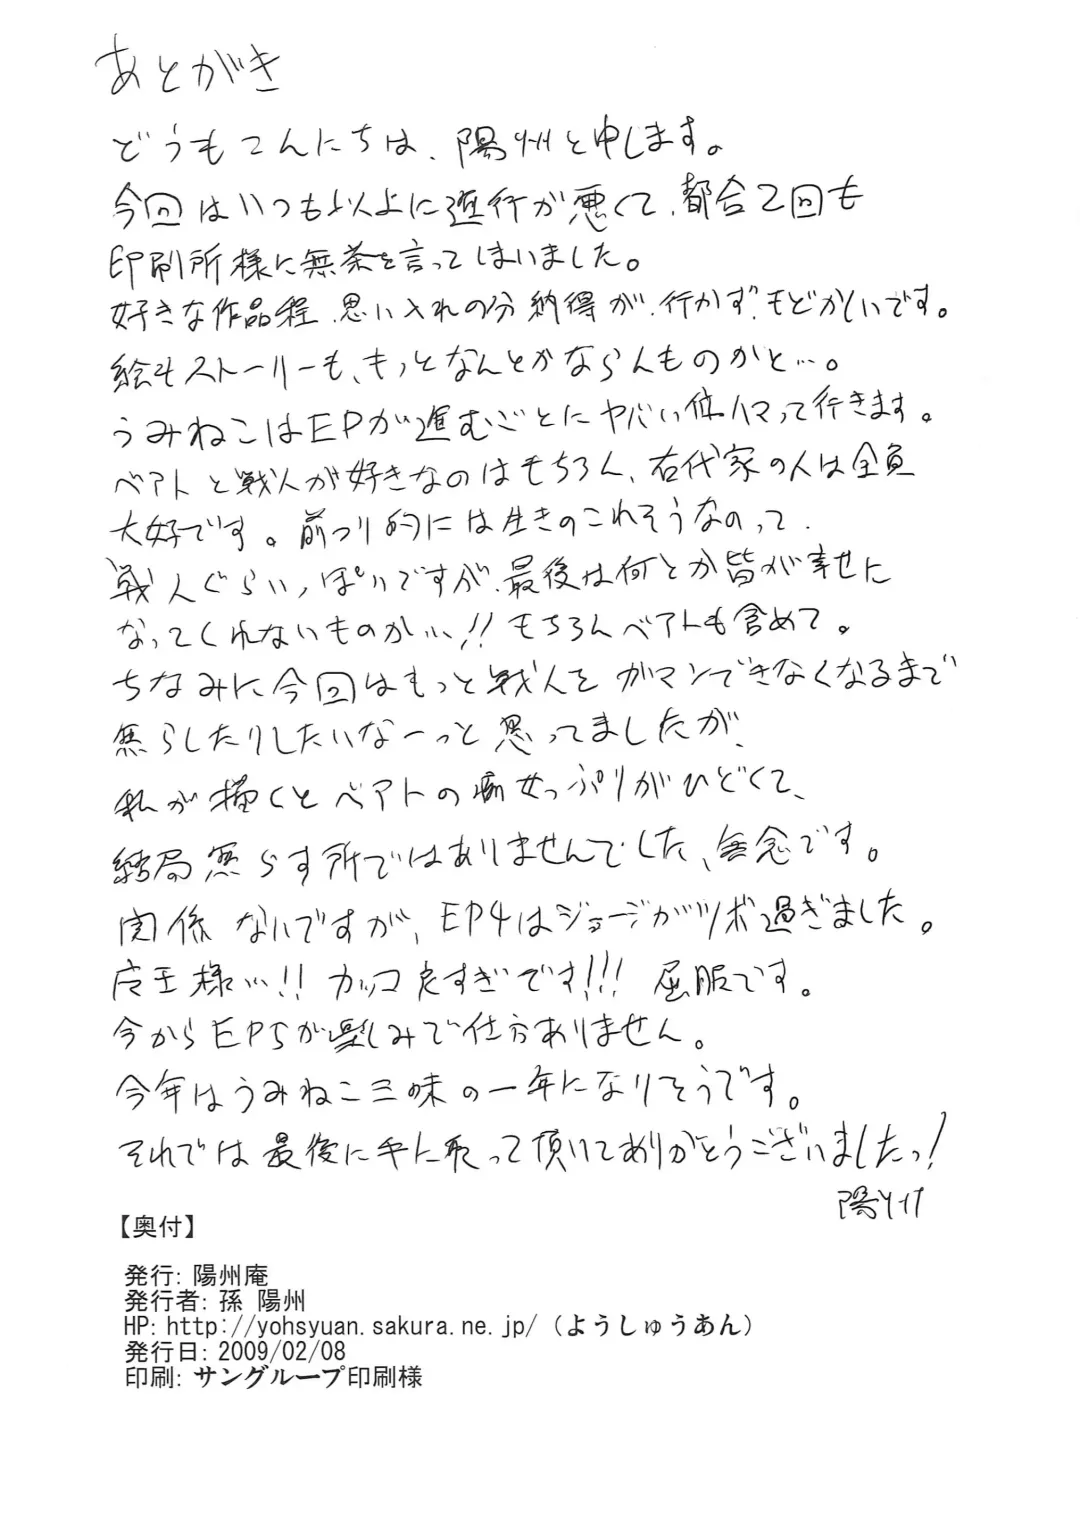 あとがき
どうもこんにちは、陽州と申します。
今回はいつも以上に進行が悪くて、都合2回も
印刷所様に無茶を言ってしまいました。
好きな作品程、思い入れの分納得が行かず、もどかしいです。
絵もストーリーも、もっとなんとかならんものかと…。
うみねこはEPが進むごとにヤバい位ハマって行きます。
ベアトと戦人が好きなのはもちろん、右代家の人は全員
大好です。前フリ的には生きのこれそうなのって、
戦人ぐらいっぽいですが、最後は何とか皆が幸せに
なってくれないものか…!!もちろんベアトも含めて。
ちなみに今回はもっと戦人をガマンできなくなるまで
焦らしたりしたいなーっと思ってましたが、
私が描くとベアトの痴女っぷりがひどくて、
結局焦らす所ではありませんでした、無念です。
関係ないですが、EP4はジョージがツボ過ぎました。
店王様…!!カッコ良すぎです!!!屈服です。
今からEP5が楽しみで仕方ありません。
今年はうみねこ三昧の一年になりそうです。
それでは最後に手に取って頂いてありがとうございましたっ!
陽州
【奥付】
発行: 陽州庵
発行者: 孫 陽州
HP: http://yohsyuan.sakura.ne.jp/（ようしゅうあん）
発行日: 2009/02/08
印刷: サングループ印刷様